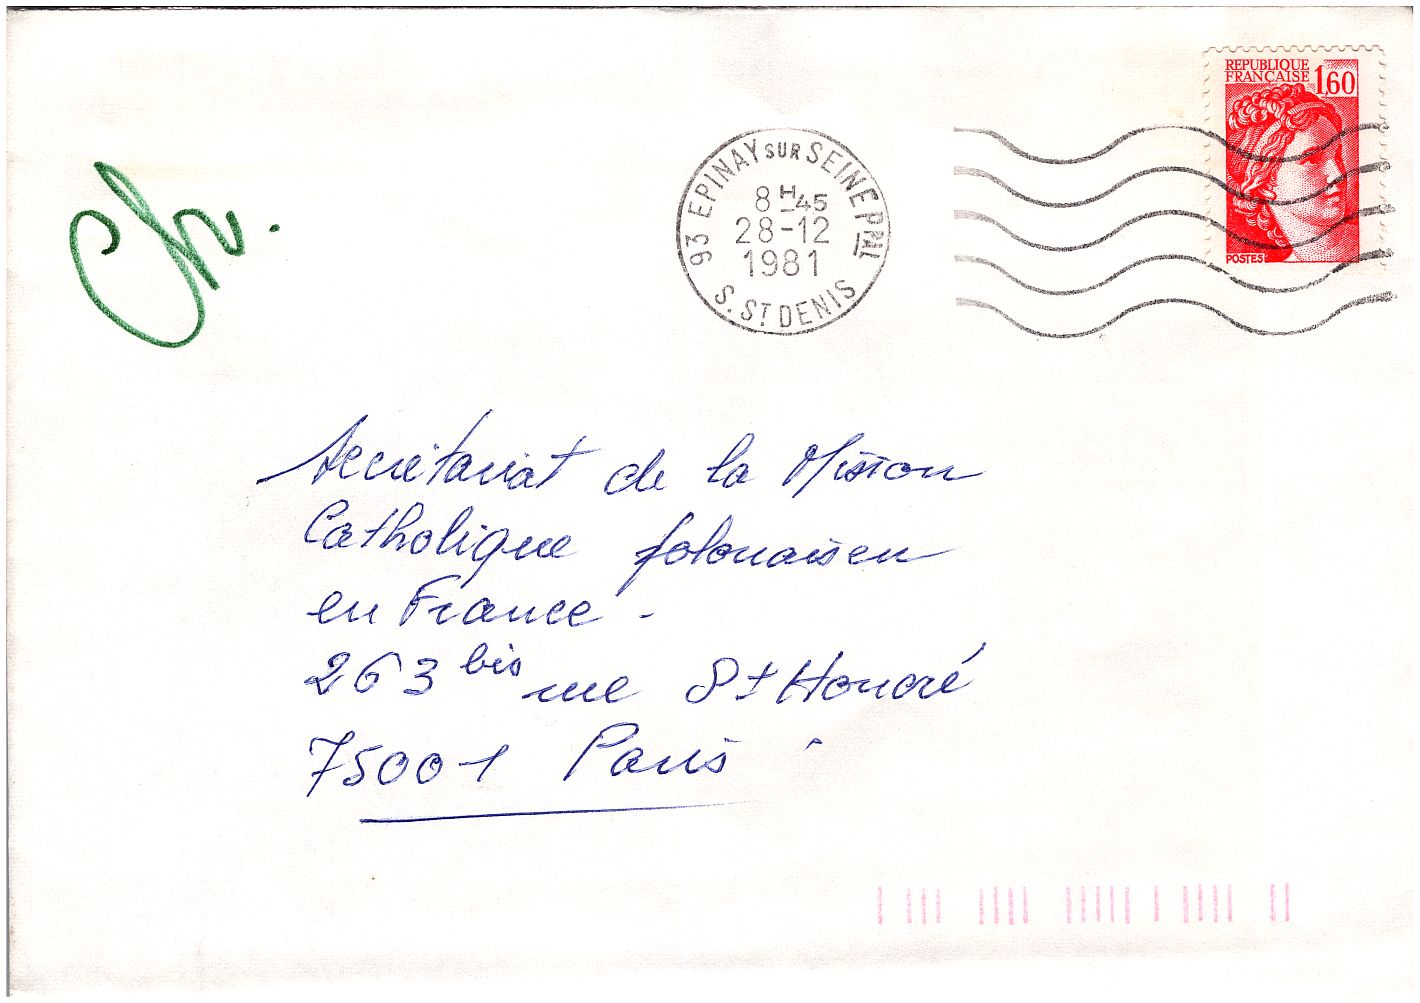 REPUBLIQUE
FRANÇAISE 1,60
POSTES
93 EPINAY SUR SEINE PPAL
8H45
28-12
1981
S. ST DENIS
Secrétariat de la Mission
Catholique polonaisen
en France -
263 bis rue St Honoré
75001 Paris